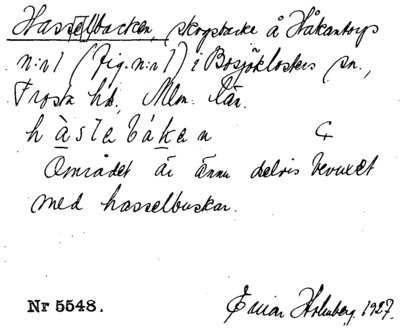 Hass[el]backen, skogsbacke å Håkantorps
n:r 1 (Fig. n:r 1) i Bosjöklosters sn.,
Frosta hd, Mlm. län.
hàslabákan
Området är ännu delvis bevuxet
med hasselbuskar.
Nr 5548. Einar Holmberg. 1927.